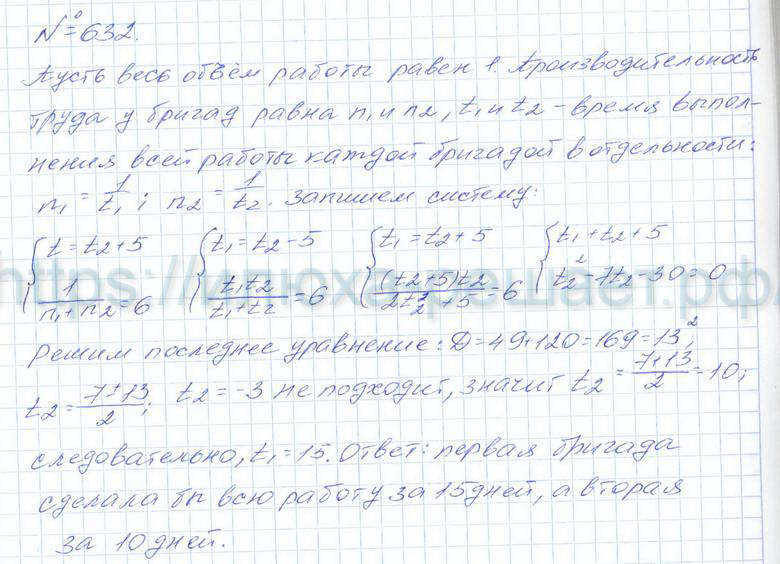 № 632.
Пусть весь объём работы равен 1. Производительность
труда у бригад равна n₁ и n₂, t₁ и t₂ – время выпол-
нения всей работы каждой бригадой в отдельности:
n₁ = 1/t₁; n₂ = 1/t₂. Запишем систему:
{t = t₂ + 5 {t₁ = t₂ - 5 {t₁ = t₂ + 5 {t₁ + t₂ + 5
{1/(n₁ + n₂) = 6 {t₁t₂/(t₁ + t₂) = 6 {(t₂ + 5)t₂/(2t₂² + 5) = 6 {t₂² - 7t₂ - 30 = 0
https://илюха-решает.рф/
Решим последнее уравнение: D = 49 + 120 = 169 = 13²;
t₂ = (7 ± 13)/2; t₂ = -3 не подходит, значит t₂ = (7 + 13)/2 = 10;
следовательно, t₁ = 15. Ответ: первая бригада
сделала бы всю работу за 15 дней, а вторая
за 10 дней.